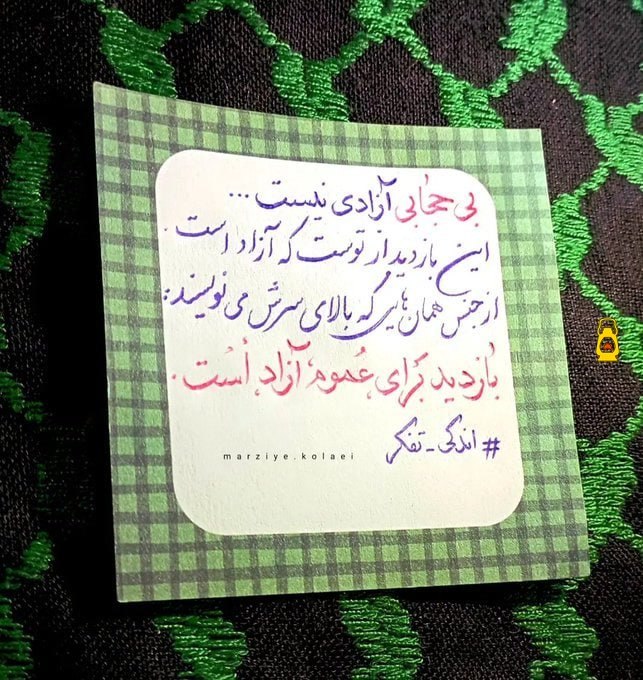 بی حجابی آزادی نیست ...
این بازدید از توست که آزاد است.
از جنس همان هایی که بالای سرش می نویسند:
بازدید برای عموم آزاد است.
# اندکی - تفکر
marziye.kolaei